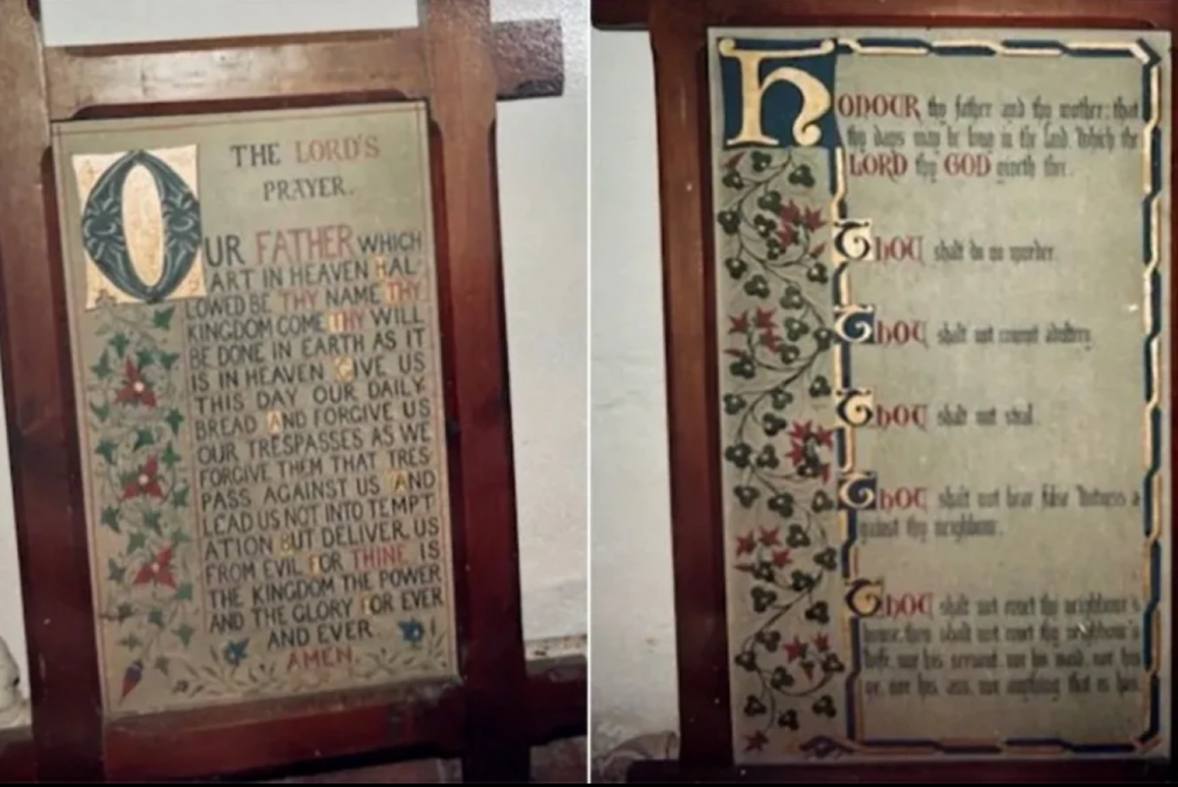 THE LORD'S
PRAYER.
OUR FATHER WHICH
ART IN HEAVEN HAL-
LOWED BE THY NAME THY
KINGDOM COME THY WILL
BE DONE IN EARTH AS IT
IS IN HEAVEN GIVE US
THIS DAY OUR DAILY
BREAD AND FORGIVE US
OUR TRESPASSES AS WE
FORGIVE THEM THAT TRES-
PASS AGAINST US AND
LEAD US NOT INTO TEMPT
ATION BUT DELIVER US
FROM EVIL FOR THINE IS
THE KINGDOM THE POWER
AND THE GLORY FOR EVER
AND EVER
AMEN.
HONOUR thy father and thy mother: that
thy days may be long in the land. Which the
LORD thy GOD giveth thee.
THOU shalt do no murder.
THOU shalt not commit adultery.
THOU shalt not steal.
THOU shalt not bear false witness a
gainst thy neighbour.
THOU shalt not covet thy neighbour's
house, thou shalt not covet thy neighbour's
wife, nor his servant, nor his maid, nor his
ox, nor his ass, nor anything that is his.